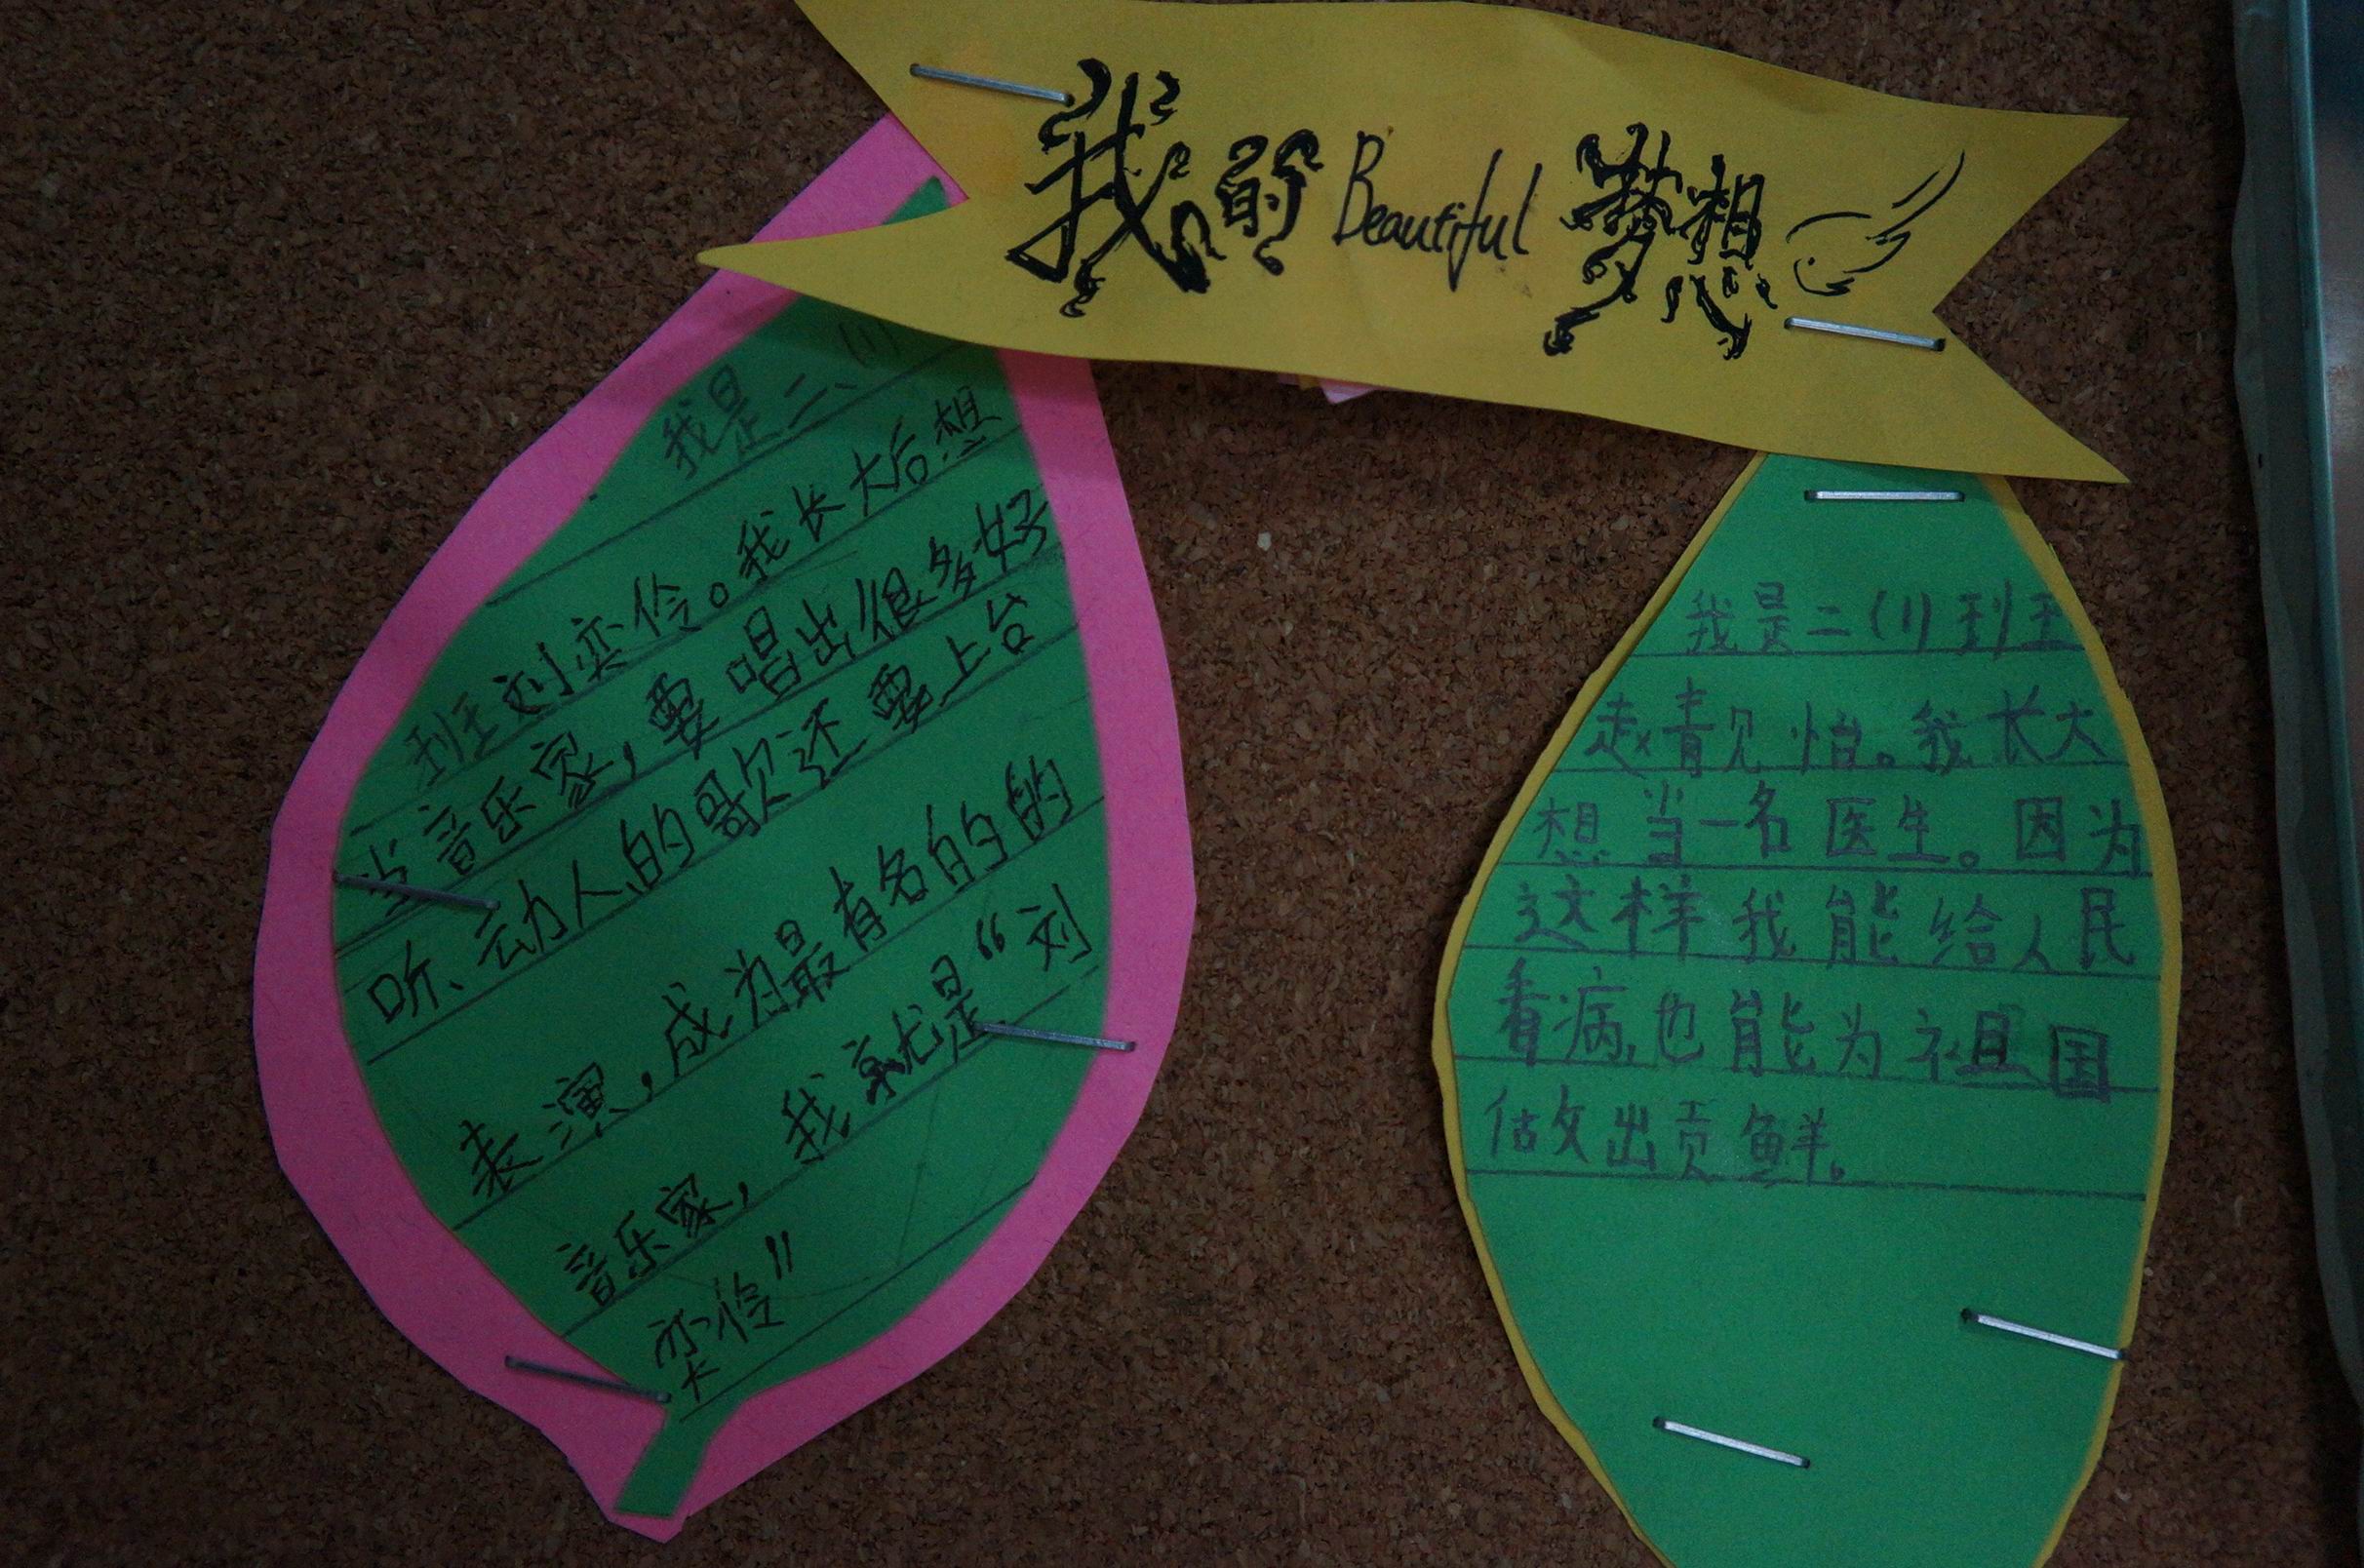 我的Beautiful梦想
我是二、(1)
班刘奕伶。我长大后想
当音乐家,要唱出很多好
听、动人的歌还要上台
表演,成为最有名的的
音乐家,我就是“刘
栾伶”
我是二(1)班
赵靓怡。我长大
想当一名医生。因为
这样我能给人民
看病,也能为祖国
做出贡鲜。